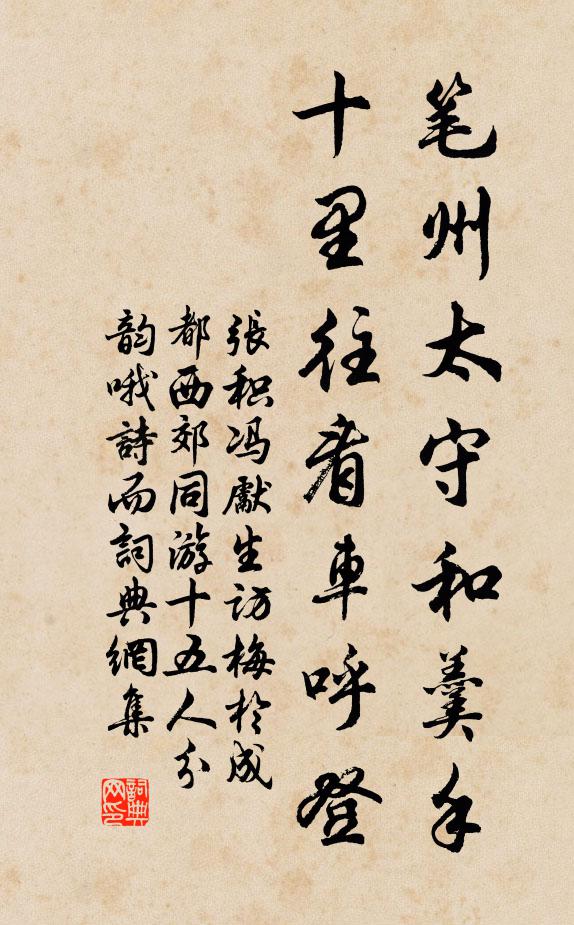 笔州太守和羹手
十里往看車呼登
張积冯獻生访梅於成
都西郊同游十五人分
韵哦詩而詞典網集
詞典网印